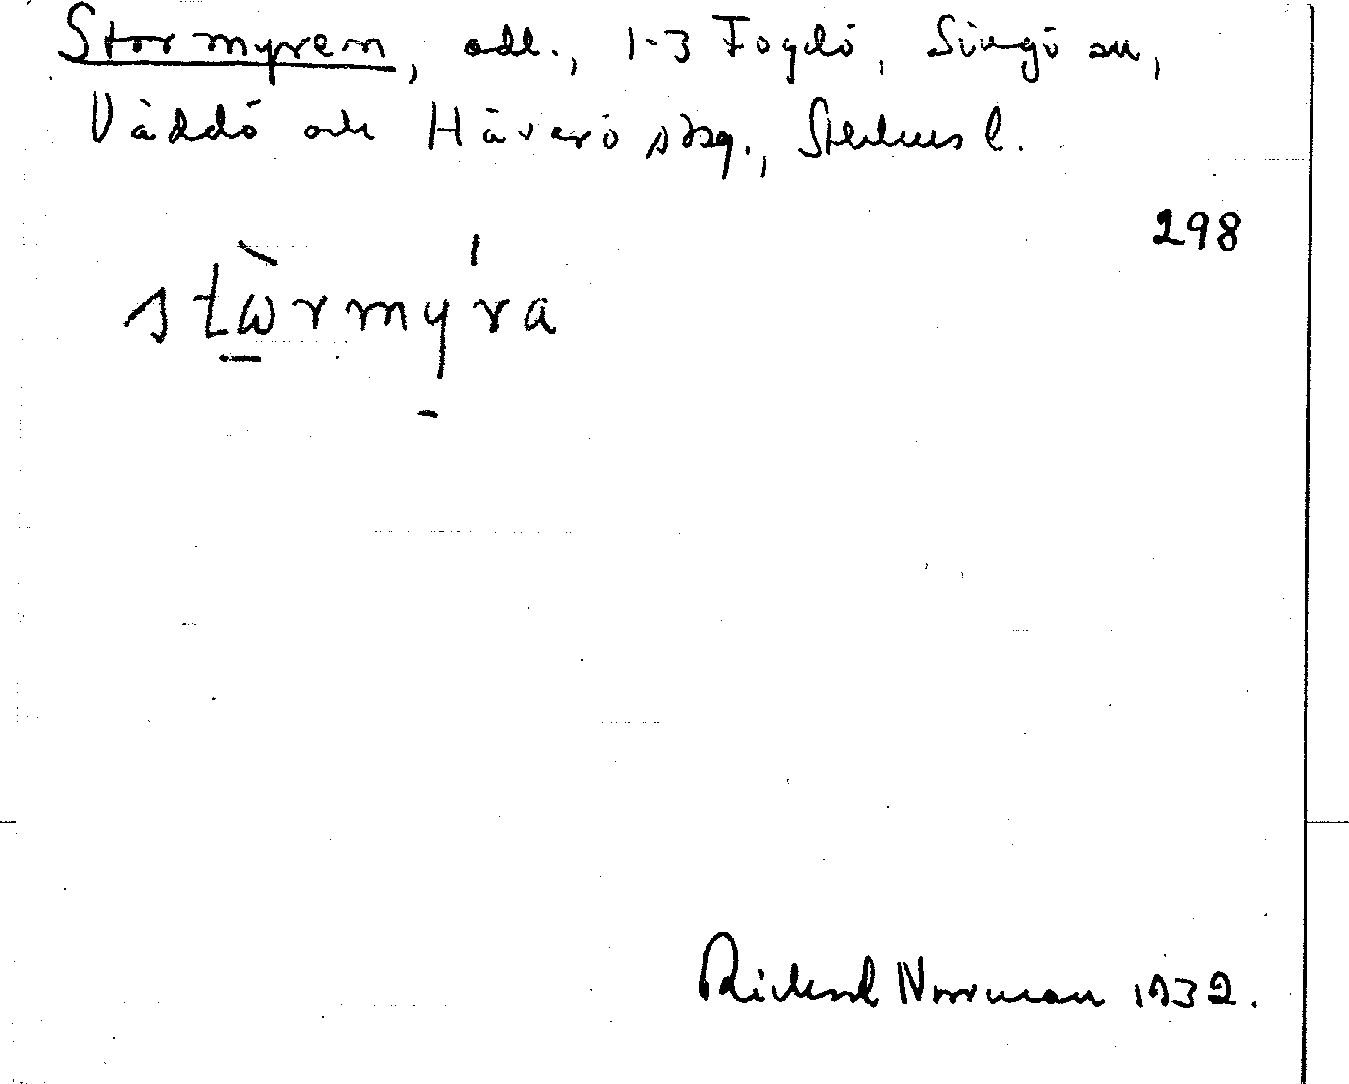 Stormyren, odl., 1-3 Fogdö, Singö sn,
Väddö och Häverö skg., Sthlms l.
298
stὼrmy̠´ra
Rickard Norrman 1932.